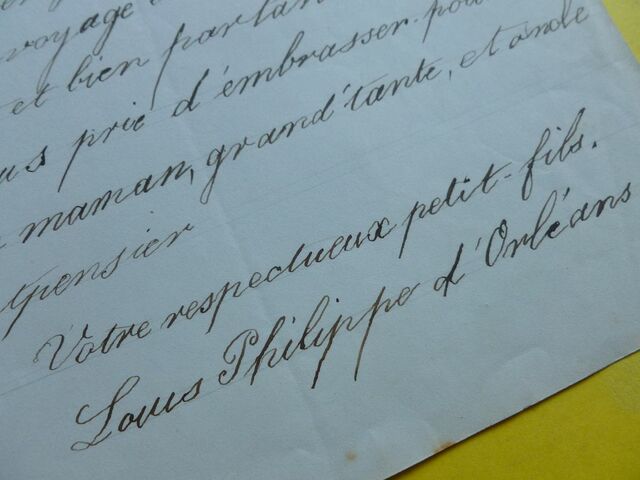 voyage
et bien partan
us prie d'embrasser pou
maman, grand'tante, et oncle
tpensier
Votre respectueux petit-fils.
Louis Philippe d'Orléans